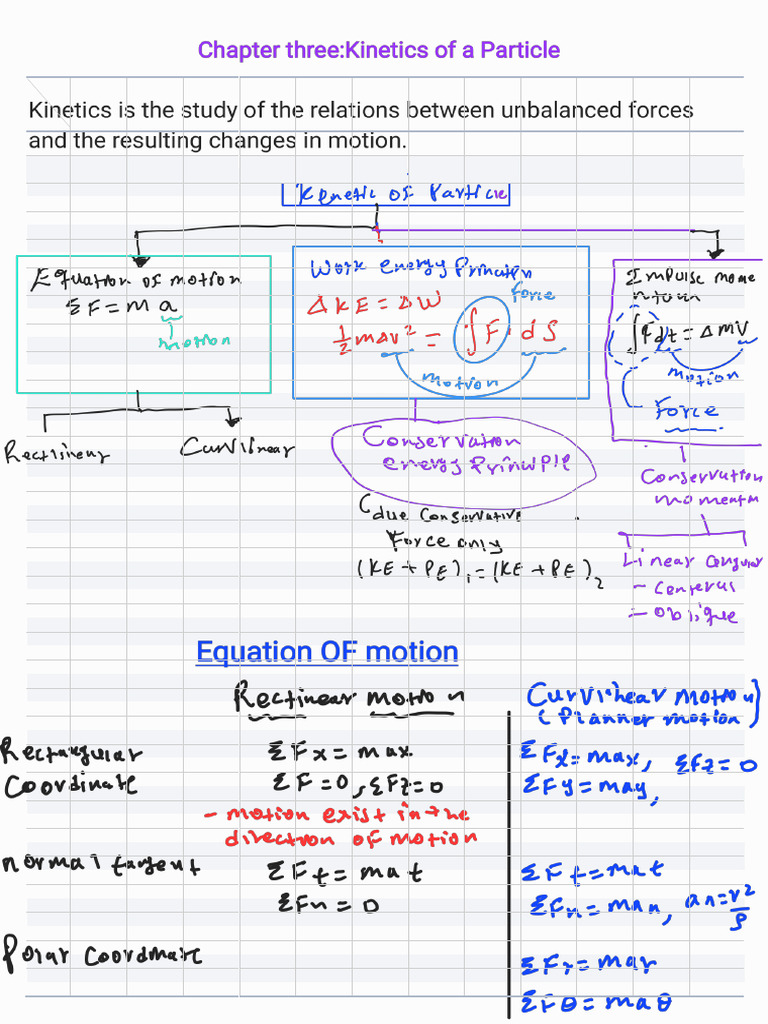 Chapter three:Kinetics of a Particle
Kinetics is the study of the relations between unbalanced forces
and the resulting changes in motion.
Kenetic of Particle
Equation of motion
ΣF = m a
motion
Work energy Principle
ΔKE = ΔW
force
½ mΔv² = ∫F · ds
motion
Impulse mome
ntum
∫Fdt = ΔmV
motion
Force
Rectlinear
Curvlinear
Conservation
energy Principle
Cdue conservative
Force only
(KE + PE)₁ = (KE + PE)₂
Conservation
momentm
Linear
- Oblique
Equation OF motion
Rectinear motion
Curvlinear motion
(Planner motion)
Rectangular
Coordinate
ΣFx = max
ΣF = 0, ΣFz = 0
- motion exist in the
direction of motion
ΣFx = max, ΣFz = 0
ΣFy = may,
normal tangent
ΣFt = mat
ΣFn = 0
ΣFt = mat
ΣFn = man, an = v²/ρ
Polar Coordinate
ΣFr = mar
ΣFθ = maθ